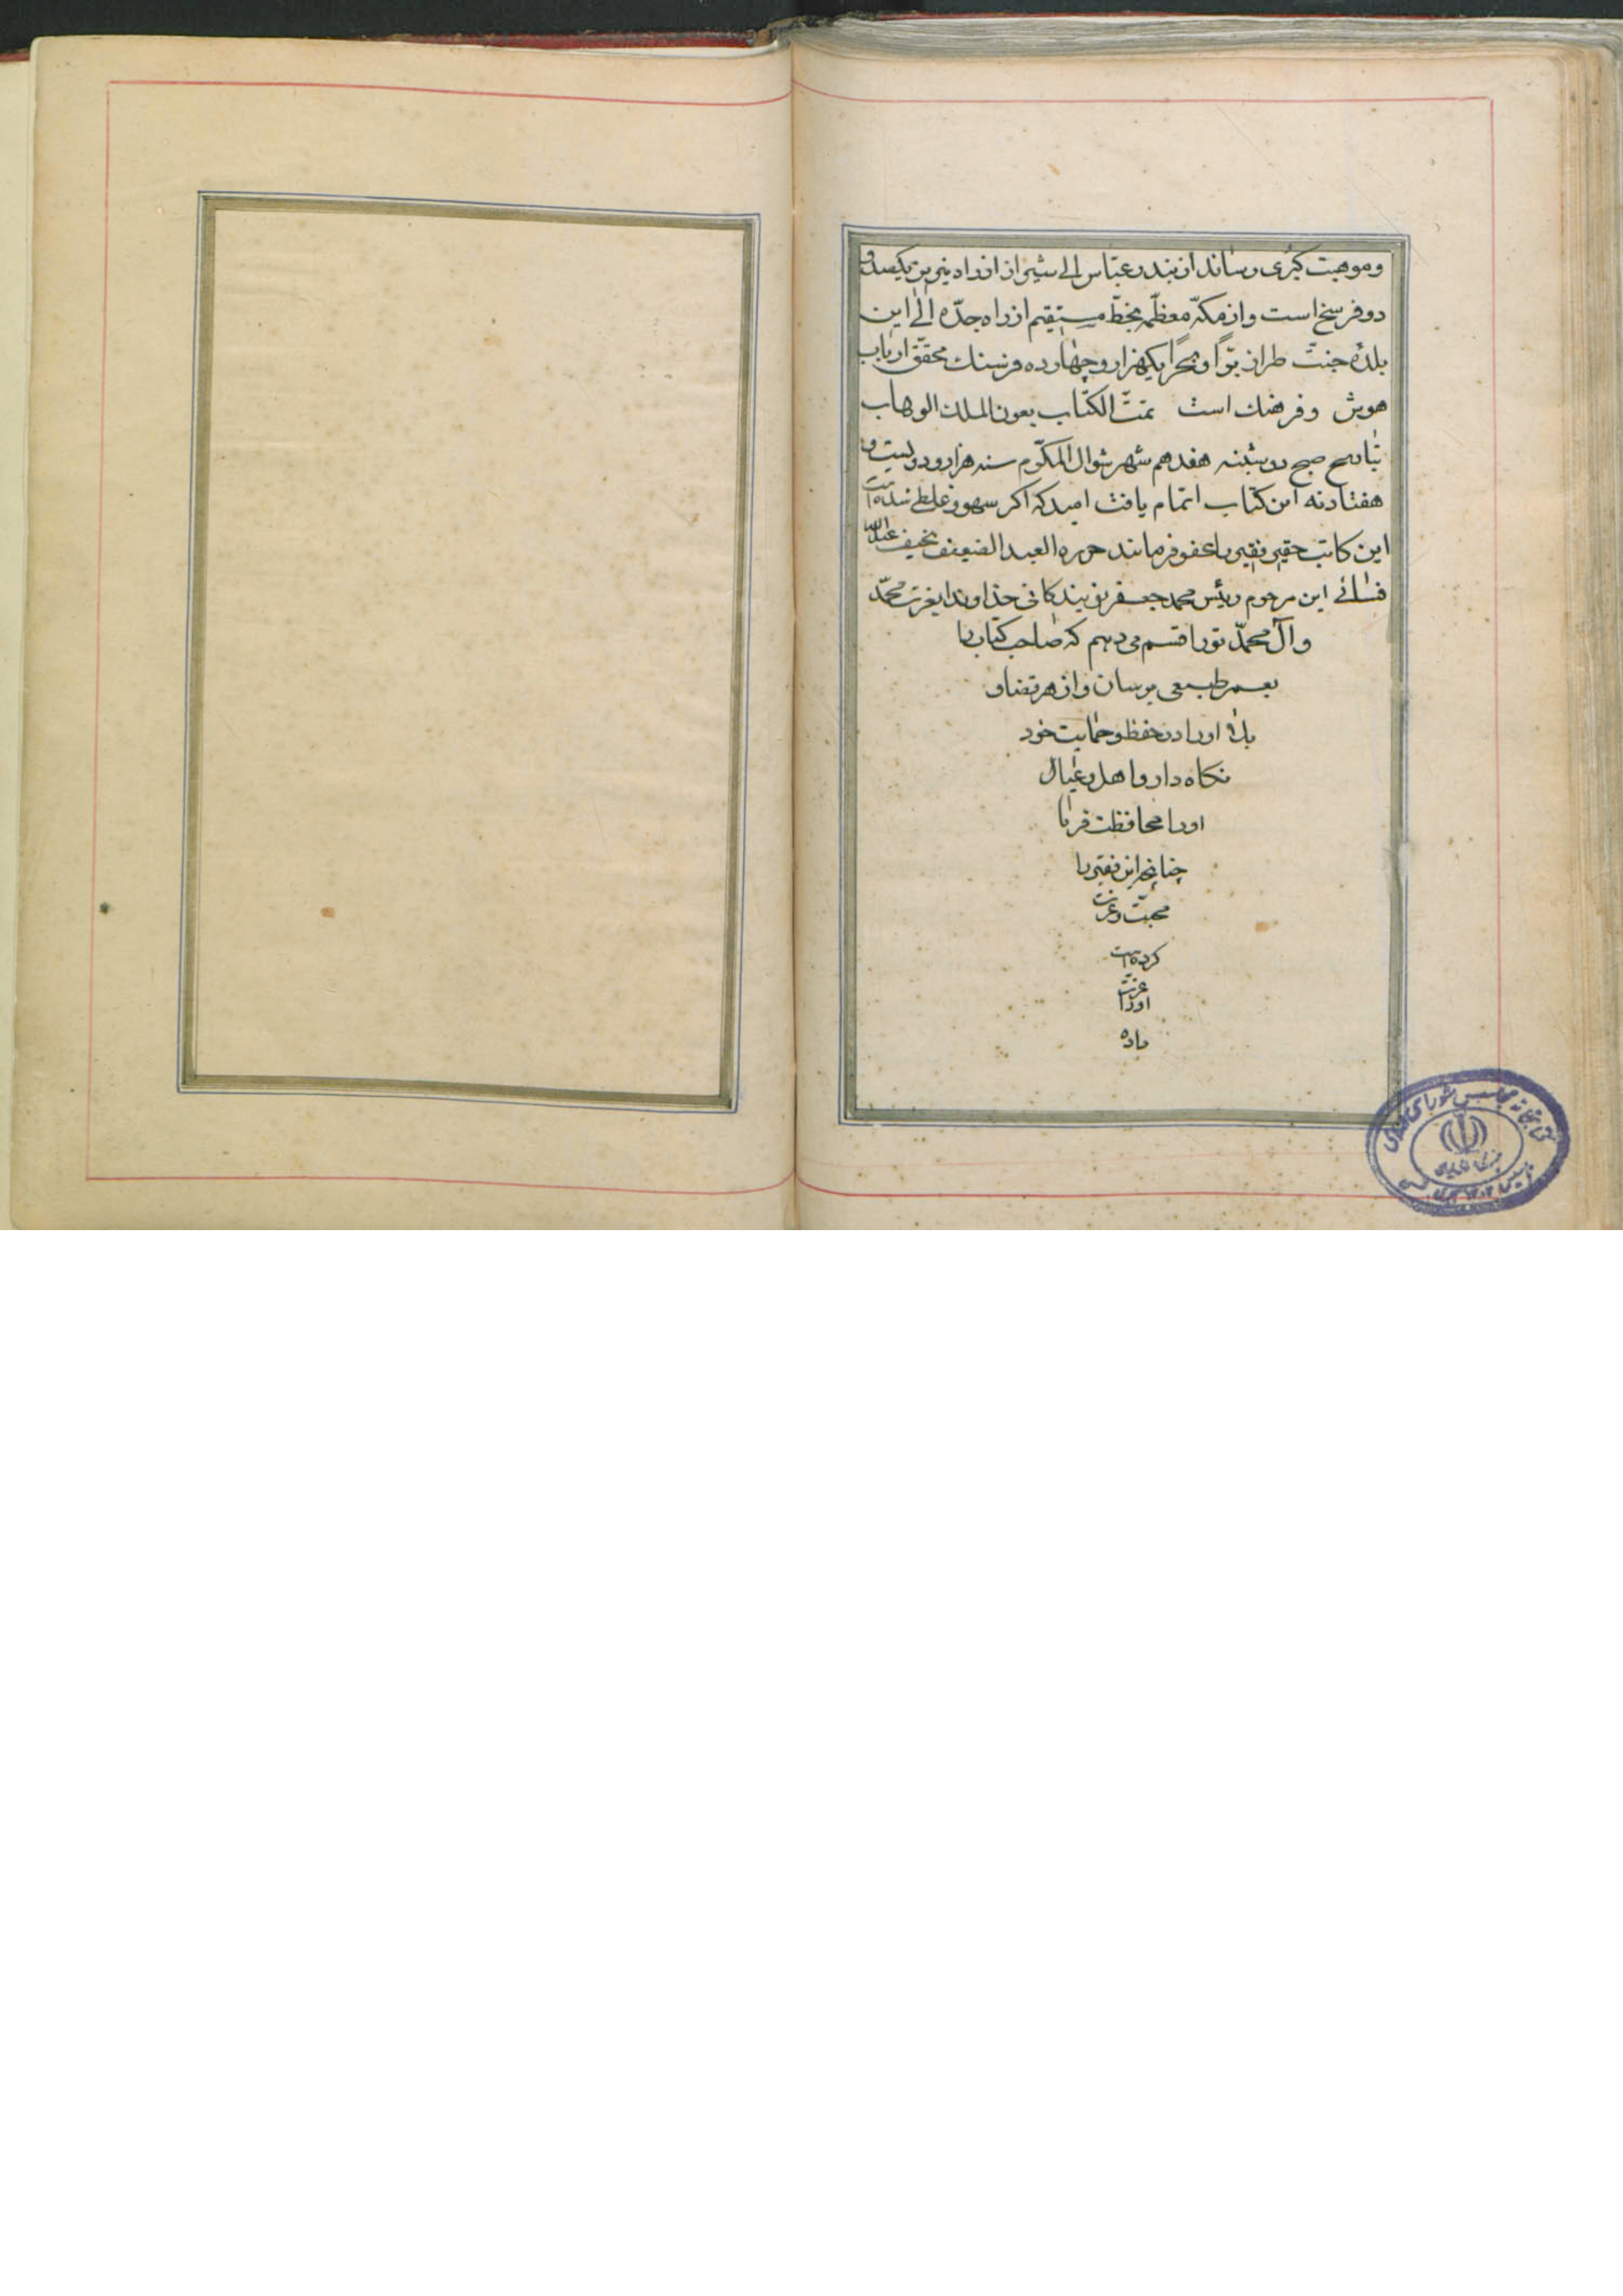 وموهبت کبری رساند از بندر عبّاس الی شیراز از راه نیریز یکصد و
دو فرسخ است و از مکّه معظّمه بخطّ مستقیم از راه جدّه الی این
بلدهٔ جنّت طراز برّاً و بحراً یکهزار و چهارده فرسنک محقّق ارباب
هوش و فرهنك است تمّت الکتاب بعون الملك الوهاب
بتاریخ صبح دوشنبه هفدهم شهر شوال المکرّم سنه هزار و دویست و
هفتاد نه این کتاب اتمام یافت امید که اکر سهو و غلطی شده است
این کاتب حقیر فقیر را عفو فرمایند حرره العبد الضعیف نحیف عبدالله
فسائی ابن مرحوم رئیس محمد جعفر خداوندا بعزت محمّد
و آل محمّد تو را قسم می دهم که صاحب کتاب را
بعمر طبیعی برسان و از هر قضا و
بلا او را در حفظ و حمایت خود
نکاه دار و اهل و عیال
او را محافظت فرما
چنانچه این فقیر را
محبّت و عزت
کرده است
عزّت
او را
باده